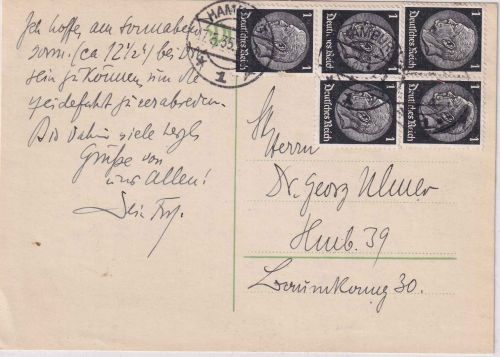 Ich hoffe, am Sonnabend
vorm. (ca 12 1/2) bei D
sein zu können um die
zu verabreden.
Bis dahin viele herzl.
Grüße von
uns allen!
Dein
HAMBURG
1
Deutsches Reich 1
Deutsches Reich 1
Deutsches Reich 1
Deutsches Reich 1
Deutsches Reich 1
Herrn
Dr. Georg Ulmer
Hmb. 39
Baumkamp 30.